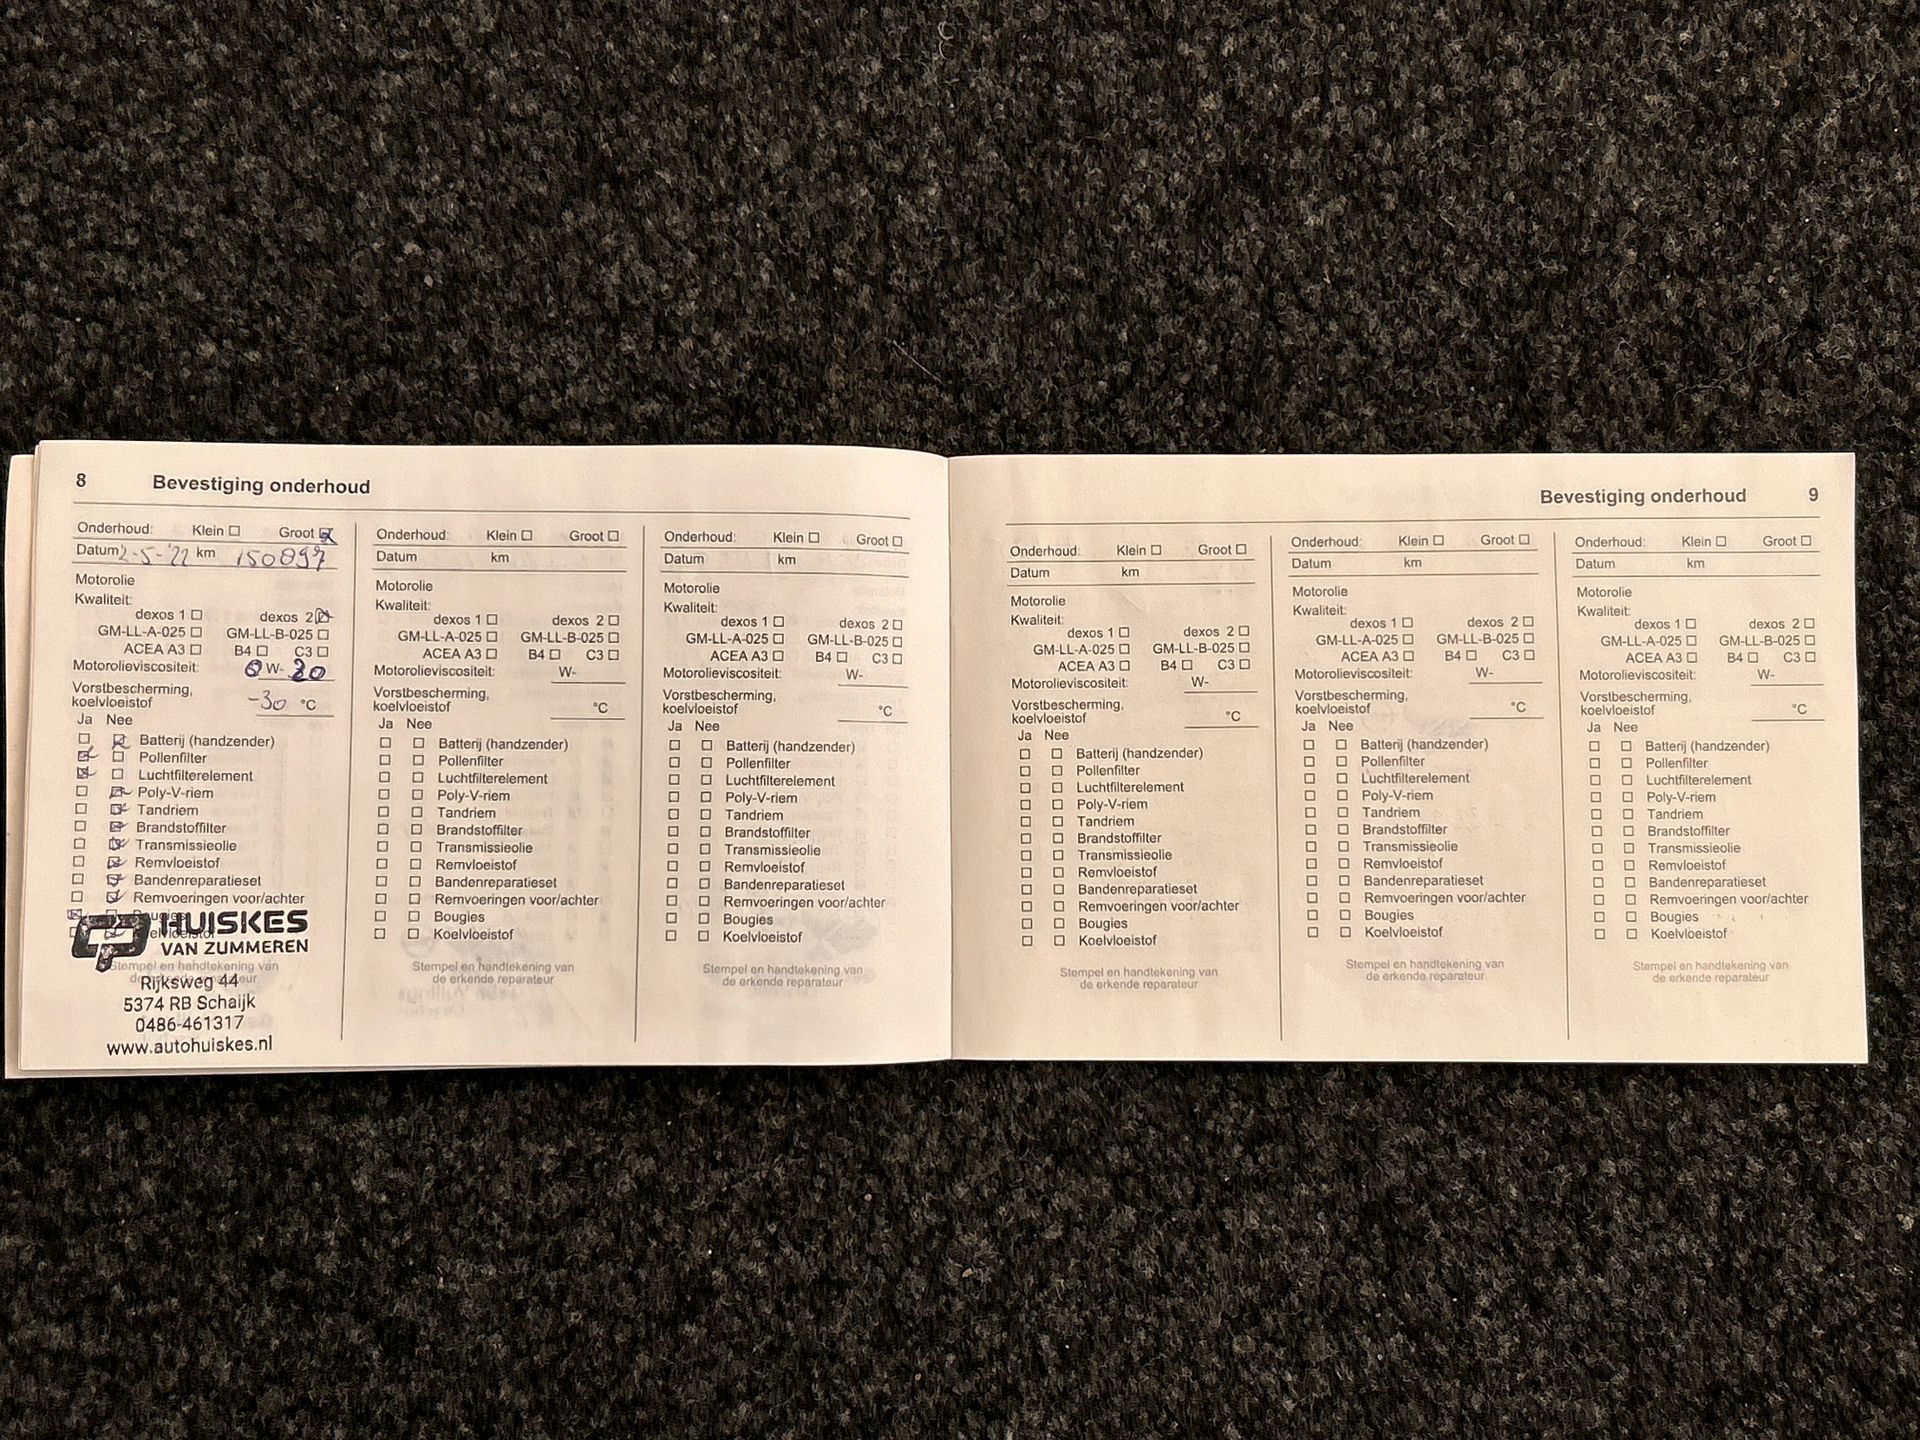 8 Bevestiging onderhoud
Onderhoud: Klein Groot
Datum 2-5-'22 km 150897
Motorolie
Kwaliteit:
dexos 1 dexos 2
GM-LL-A-025 GM-LL-B-025
ACEA A3 B4 C3
Motorolieviscositeit: W-
Vorstbescherming,
koelvloeistof -30 °C
Ja Nee
Batterij (handzender)
Pollenfilter
Luchtfilterelement
Poly-V-riem
Tandriem
Brandstoffilter
Transmissieolie
Remvloeistof
Bandenreparatieset
Remvoeringen voor/achter
HUISKES
VAN ZUMMEREN
Stempel en handtekening van
Rijksweg 44
5374 RB Schaijk
0486-461317
www.autohuiskes.nl
Onderhoud: Klein Groot
Datum km
Motorolie
Kwaliteit:
dexos 1 dexos 2
GM-LL-A-025 GM-LL-B-025
ACEA A3 B4 C3
Motorolieviscositeit: W-
Vorstbescherming,
koelvloeistof °C
Ja Nee
Batterij (handzender)
Pollenfilter
Luchtfilterelement
Poly-V-riem
Tandriem
Brandstoffilter
Transmissieolie
Remvloeistof
Bandenreparatieset
Remvoeringen voor/achter
Bougies
Koelvloeistof
Stempel en handtekening van
de erkende reparateur
Onderhoud: Klein Groot
Datum km
Motorolie
Kwaliteit:
dexos 1 dexos 2
GM-LL-A-025 GM-LL-B-025
ACEA A3 B4 C3
Motorolieviscositeit: W-
Vorstbescherming,
koelvloeistof °C
Ja Nee
Batterij (handzender)
Pollenfilter
Luchtfilterelement
Poly-V-riem
Tandriem
Brandstoffilter
Transmissieolie
Remvloeistof
Bandenreparatieset
Remvoeringen voor/achter
Bougies
Koelvloeistof
Stempel en handtekening van
de erkende reparateur
Bevestiging onderhoud 9
Onderhoud: Klein Groot
Datum km
Motorolie
Kwaliteit:
dexos 1 dexos 2
GM-LL-A-025 GM-LL-B-025
ACEA A3 B4 C3
Motorolieviscositeit: W-
Vorstbescherming,
koelvloeistof °C
Ja Nee
Batterij (handzender)
Pollenfilter
Luchtfilterelement
Poly-V-riem
Tandriem
Brandstoffilter
Transmissieolie
Remvloeistof
Bandenreparatieset
Remvoeringen voor/achter
Bougies
Koelvloeistof
Stempel en handtekening van
de erkende reparateur
Onderhoud: Klein Groot
Datum km
Motorolie
Kwaliteit:
dexos 1 dexos 2
GM-LL-A-025 GM-LL-B-025
ACEA A3 B4 C3
Motorolieviscositeit: W-
Vorstbescherming,
koelvloeistof °C
Ja Nee
Batterij (handzender)
Pollenfilter
Luchtfilterelement
Poly-V-riem
Tandriem
Brandstoffilter
Transmissieolie
Remvloeistof
Bandenreparatieset
Remvoeringen voor/achter
Bougies
Koelvloeistof
Stempel en handtekening van
de erkende reparateur
Onderhoud: Klein Groot
Datum km
Motorolie
Kwaliteit:
dexos 1 dexos 2
GM-LL-A-025 GM-LL-B-025
ACEA A3 B4 C3
Motorolieviscositeit: W-
Vorstbescherming,
koelvloeistof °C
Ja Nee
Batterij (handzender)
Pollenfilter
Luchtfilterelement
Poly-V-riem
Tandriem
Brandstoffilter
Transmissieolie
Remvloeistof
Bandenreparatieset
Remvoeringen voor/achter
Bougies
Koelvloeistof
Stempel en handtekening van
de erkende reparateur